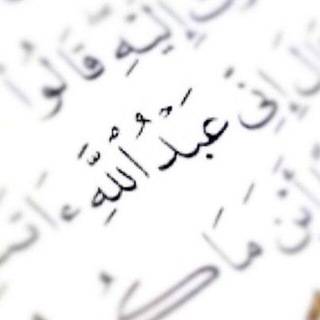 إِلَيْهِ قَالُوا
إِنِّى عَبْدُ ٱللَّهِ ءَاتَى
أَيْنَ مَا كُ